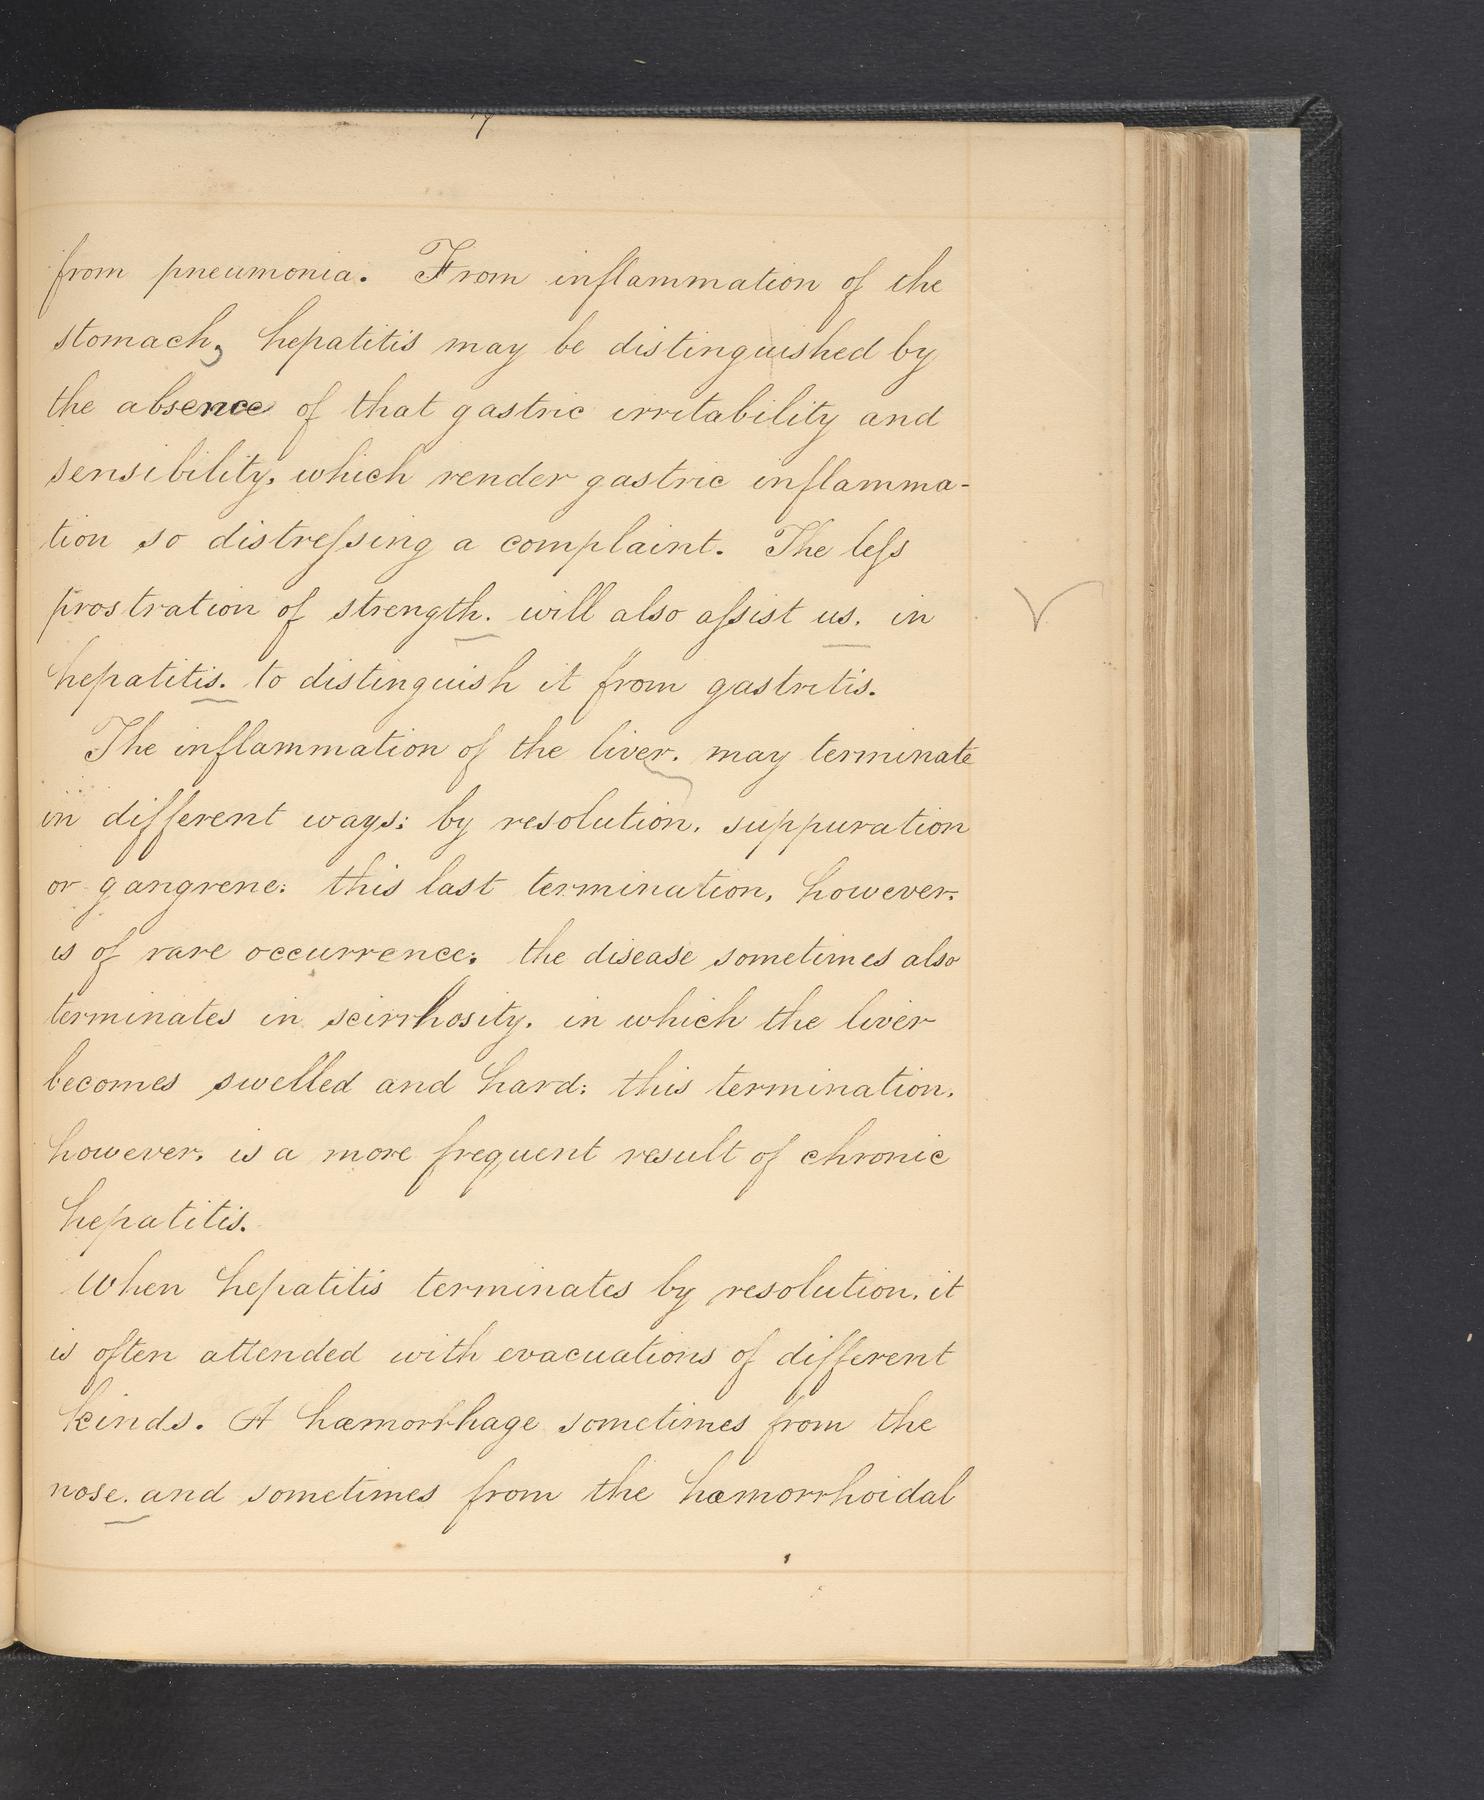 7
from pneumonia. From inflammation of the
stomach, hepatitis may be distinguished by
the absence of that gastric irritability and
sensibility, which render gastric inflamma-
tion so distreſsing a complaint. The leſs
prostration of strength. will also aſsist us. in
hepatitis. to distinguish it from gastritis.
The inflammation of the liver. may terminate
in different ways; by resolution, suppuration
or gangrene: this last termination, however.
is of rare occurrence; the disease sometimes also
terminates in scirrhosity. in which the liver
becomes swelled and hard: this termination.
however. is a more frequent result of chronic
hepatitis.
When hepatitis terminates by resolution, it
is often attended with evacuations of different
kinds. A hæmorrhage sometimes from the
nose. and sometimes from the hæmorrhoidal